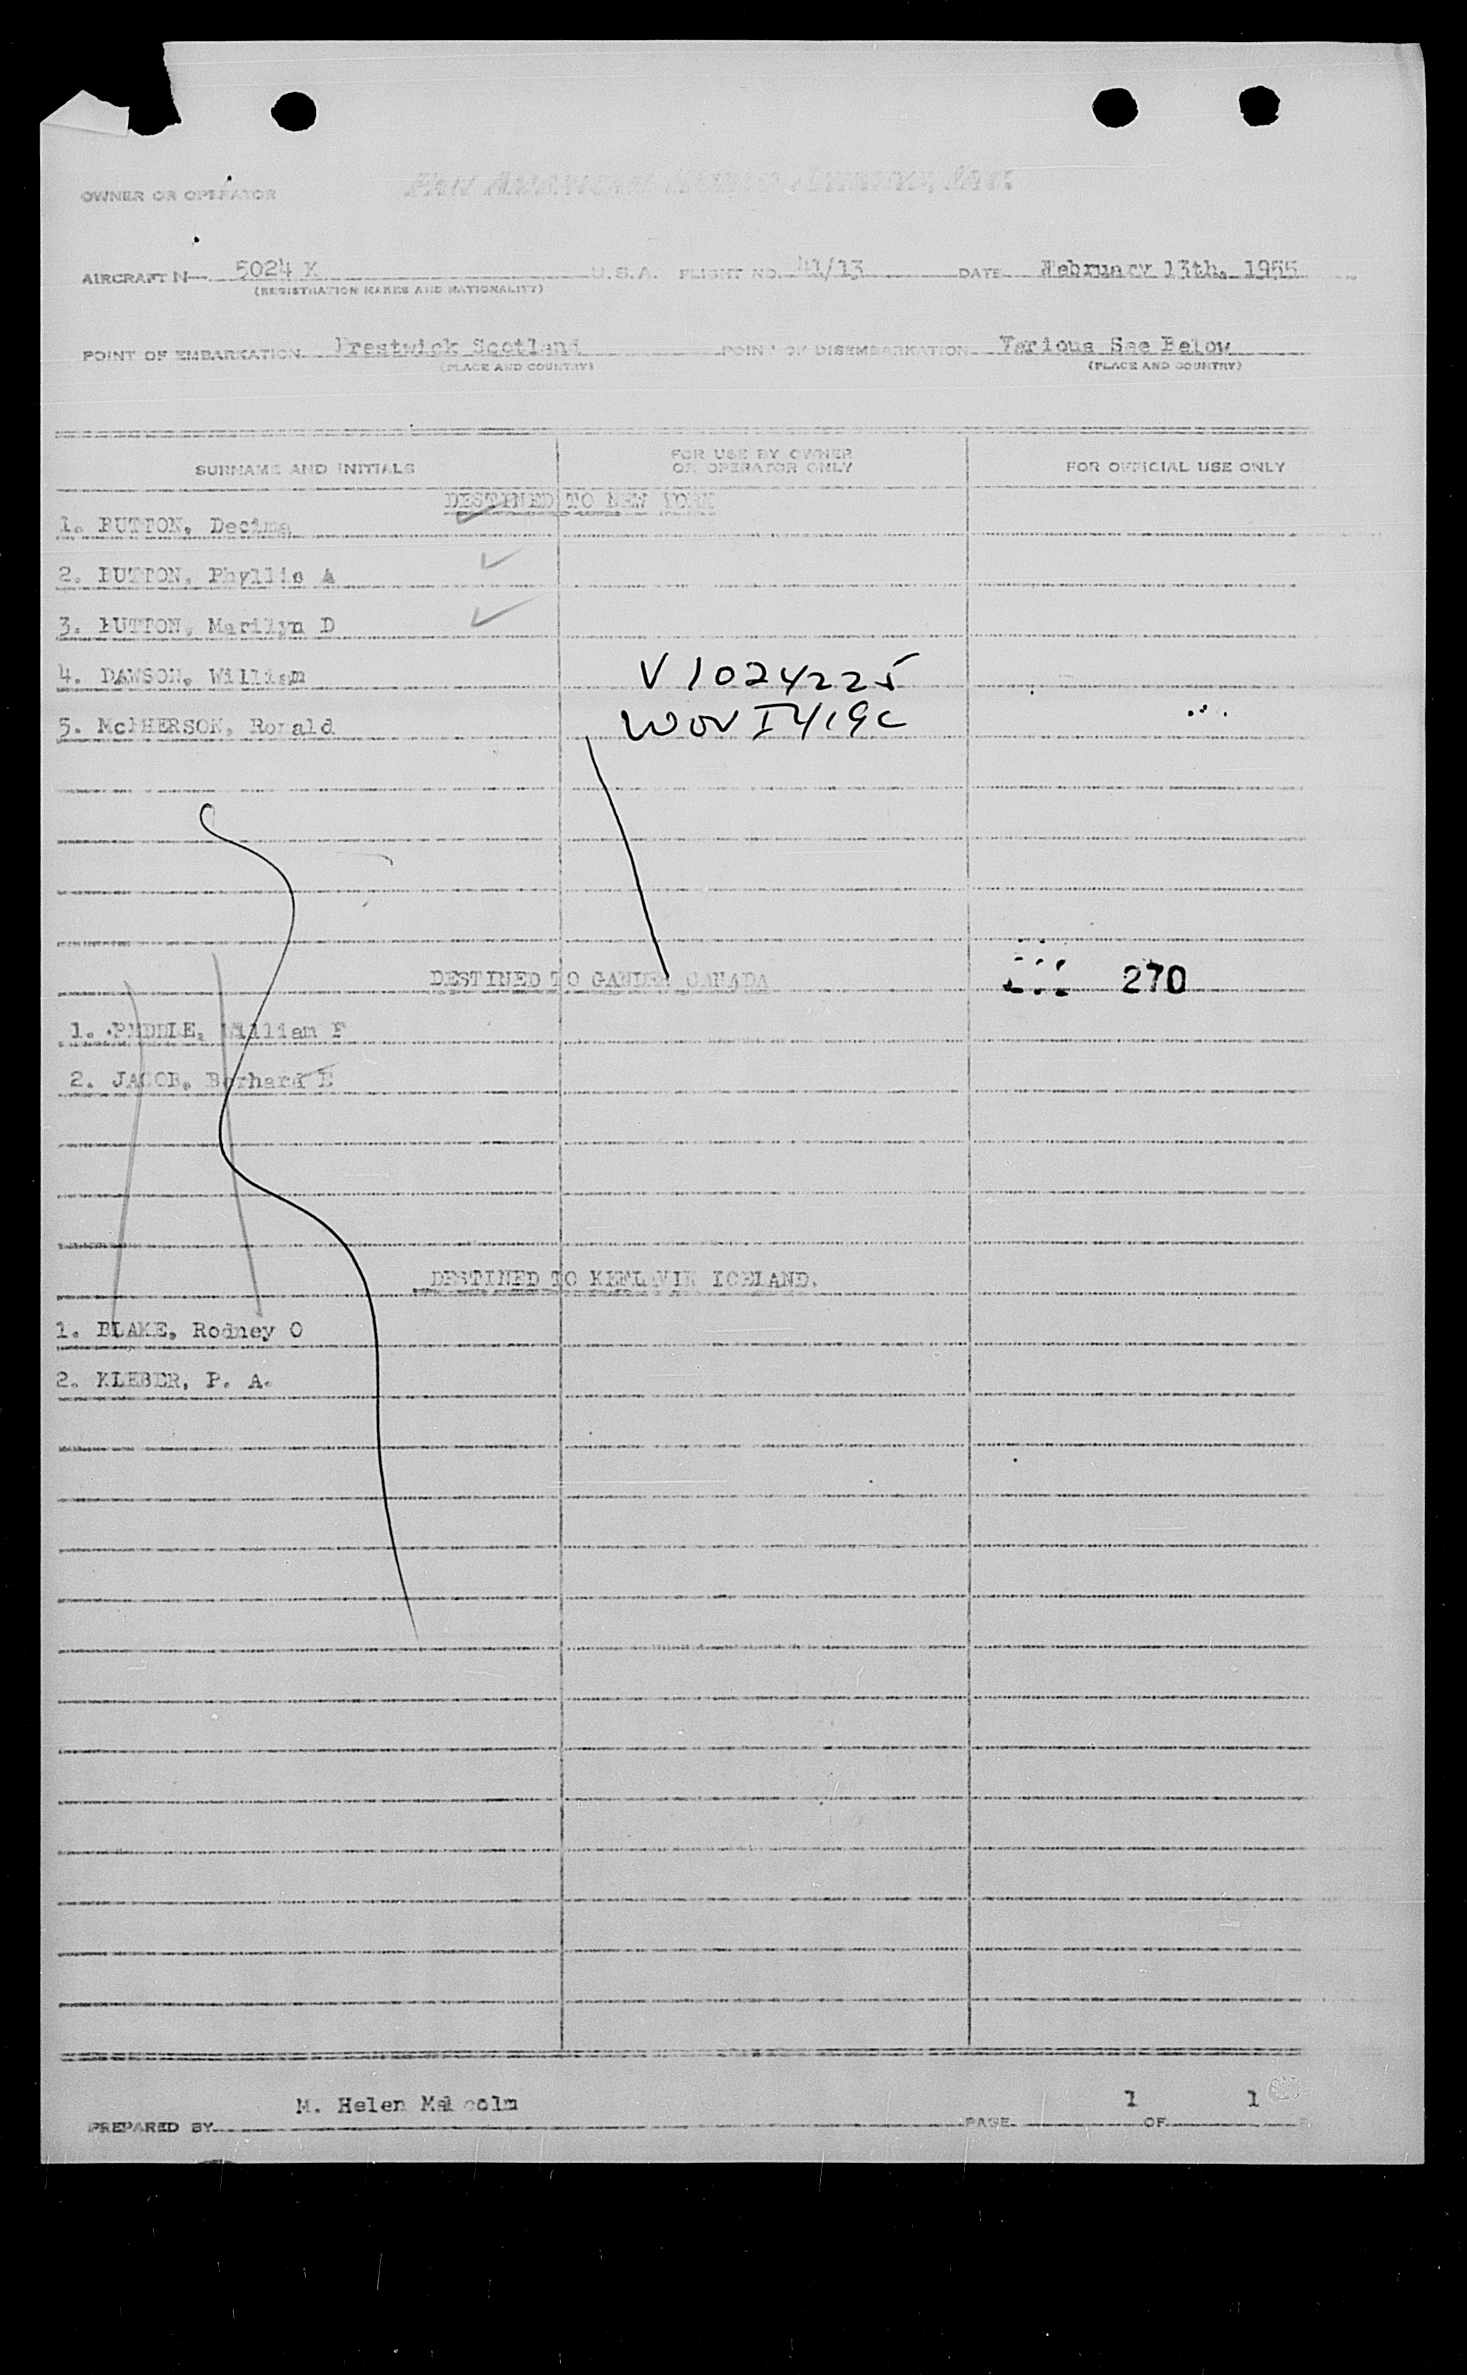 OWNER OR OPERATOR Pan American World Airways, Inc.
AIRCRAFT N 5024 K U.S.A. FLIGHT NO. 41/13 DATE February 13th. 1955
(REGISTRATION MARKS AND NATIONALITY)
POINT OF EMBARKATION Prestwick Scotland POINT OF DISEMBARKATION Various See Below
(PLACE AND COUNTRY) (PLACE AND COUNTRY)
SURNAME AND INITIALS FOR USE BY OWNER OR OPERATOR ONLY FOR OFFICIAL USE ONLY
DESTINED TO NEW YORK
1. BUTTON, Decima
2. BUTTON, Phyllis A
3. BUTTON, Marilyn D
4. DAWSON, William V1024225
5. McPHERSON, Ronald
DESTINED TO GANDER CANADA 270
1. PEDDLE, William F
2. JACOB, Berhard E
DESTINED TO KEFLAVIK ICELAND.
1. BLAKE, Rodney O
2. KLEBER, P. A.
M. Helen Malcolm 1 1
PREPARED BY PAGE OF